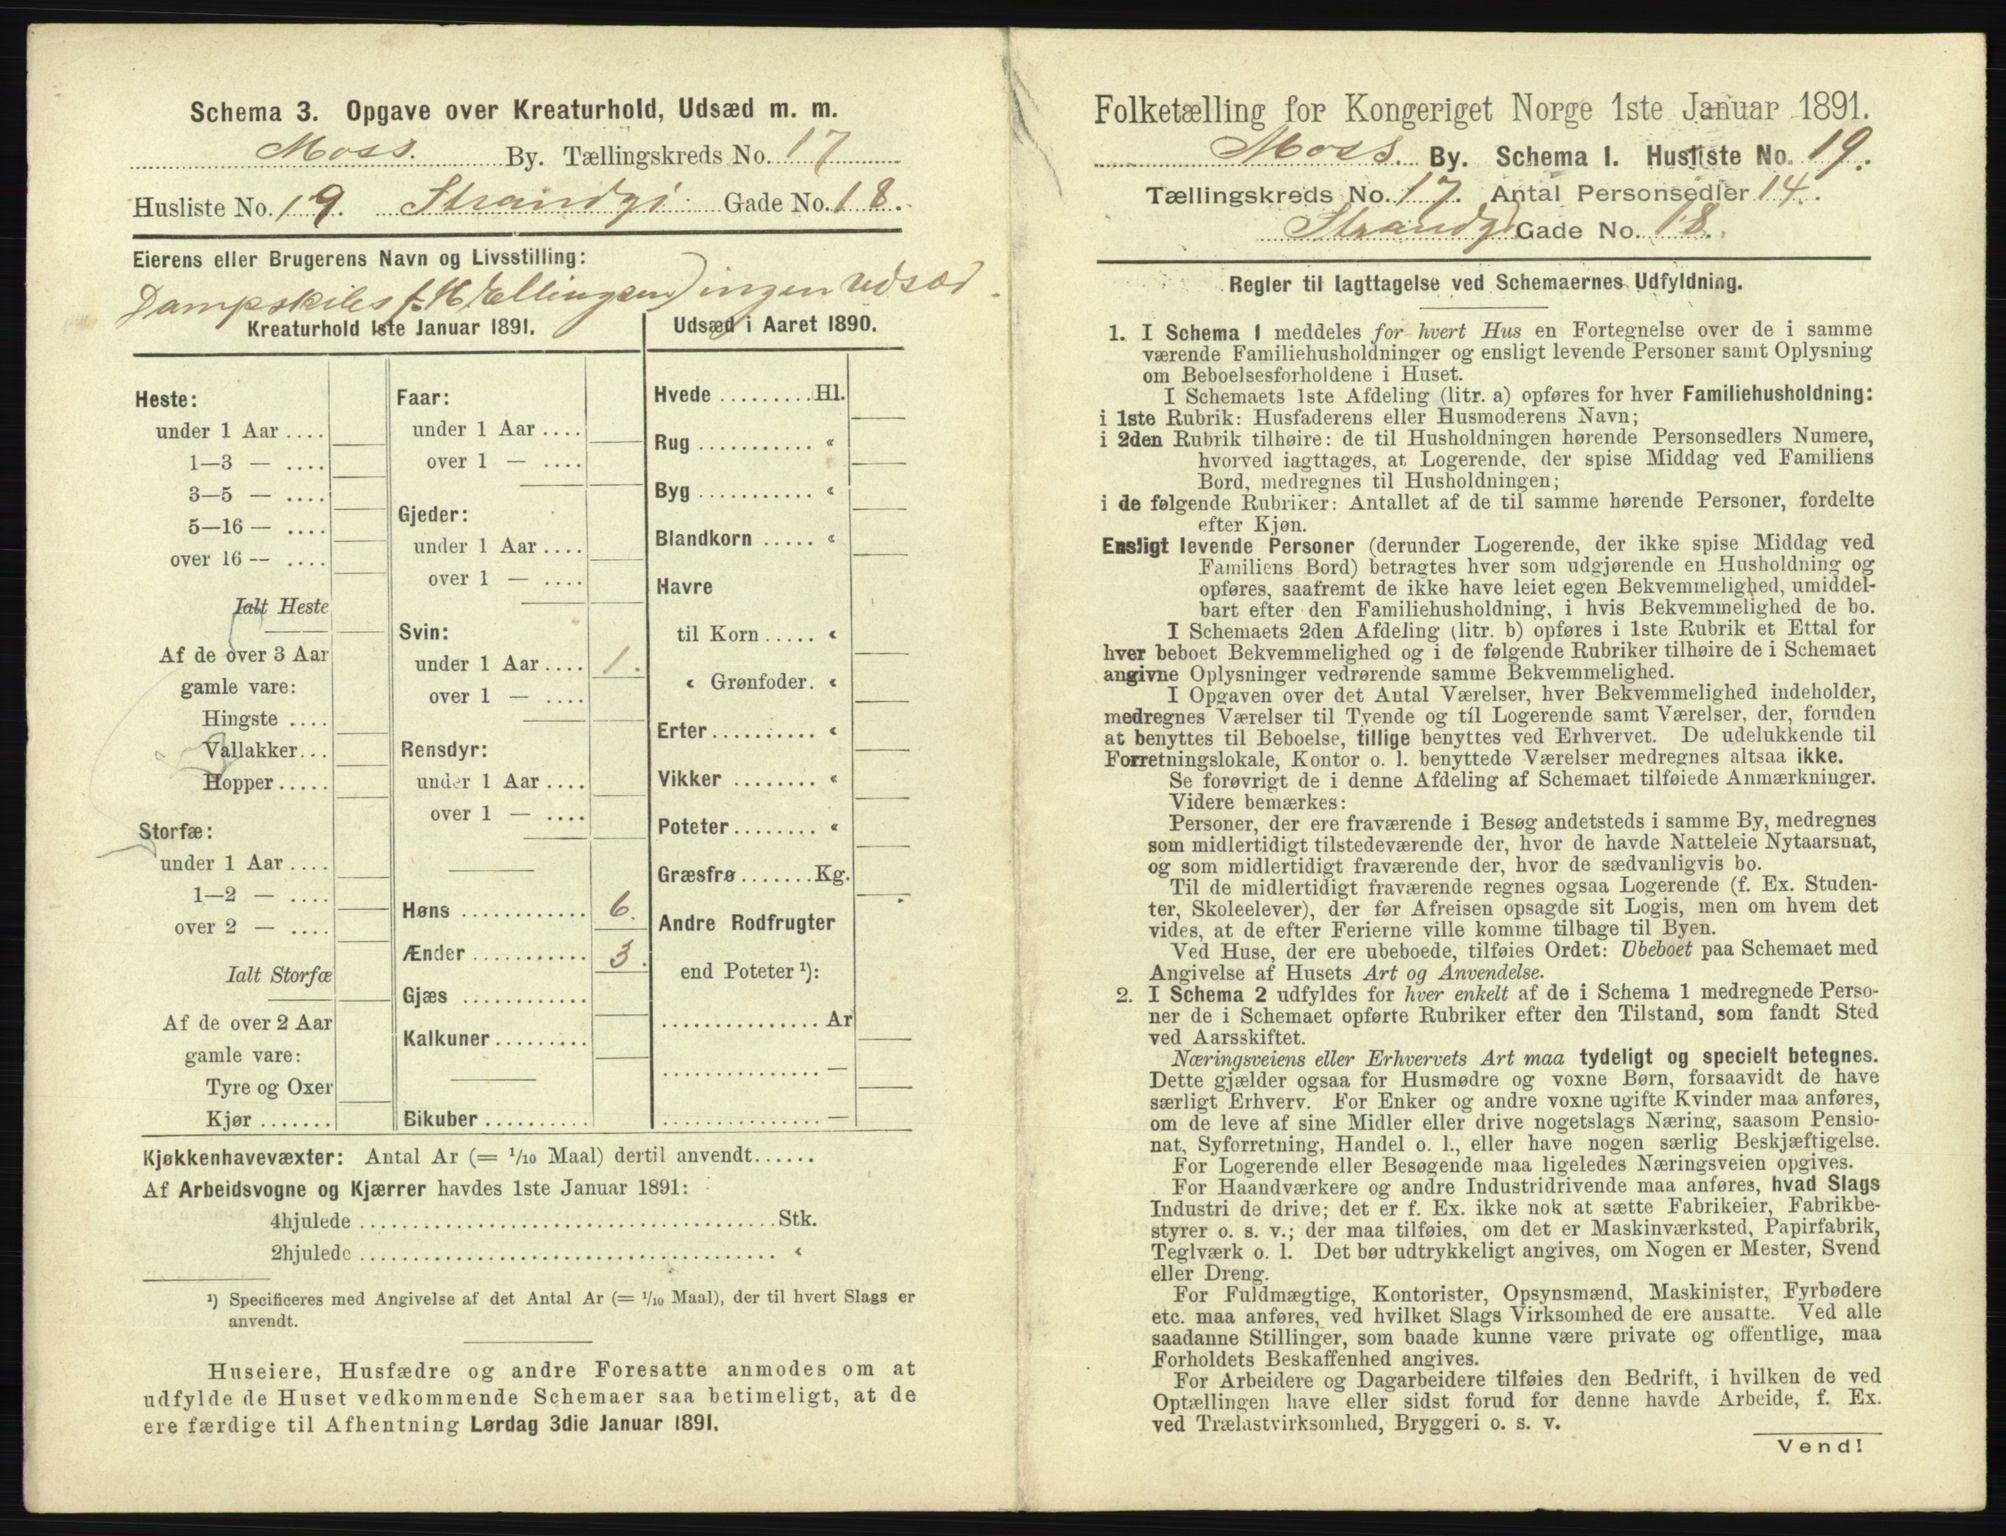 Schema 3. Opgave over Kreaturhold, Udsæd m. m.
Moss. By. Tællingskreds No. 17
Husliste No. 19. Strandg. Gade No. 18.
Eierens eller Brugerens Navn og Livsstilling:
ingen udsæd.
Kreaturhold 1ste Januar 1891.
Heste:
under 1 Aar ....
1—3 — ....
3—5 — ....
5—16 — ....
over 16 — ....
Ialt Heste
Af de over 3 Aar
gamle vare:
Hingste ....
Vallakker...
Hopper.....
Storfæ:
under 1 Aar ....
1—2 — ....
over 2 — ....
Ialt Storfæ
Af de over 2 Aar
gamle vare:
Tyre og Oxer
Kjør .......
Faar:
under 1 Aar ....
over 1 — ....
Gjeder:
under 1 Aar ....
over 1 — ....
Svin:
under 1 Aar .... 1.
over 1 — ....
Rensdyr:
under 1 Aar ....
over 1 — ....
Høns ............ 6.
Ænder ........... 3.
Gjæs ............
Kalkuner.........
Bikuber ..........
Udsæd i Aaret 1890.
Hvede .........Hl.
Rug ........... «
Byg ........... «
Blandkorn ..... «
Havre
til Korn ..... «
« Grønfoder. «
Erter.......... «
Vikker ........ «
Poteter........ «
Græsfrø.......Kg.
Andre Rodfrugter
end Poteter ¹):
............... Ar
............... —
............... —
Kjøkkenhavevæxter: Antal Ar (= 1/10 Maal) dertil anvendt......
Af Arbeidsvogne og Kjærrer havdes 1ste Januar 1891:
4hjulede ........................................Stk.
2hjulede ........................................ «
¹) Specificeres med Angivelse af det Antal Ar (= 1/10 Maal), der til hvert Slags er
anvendt.
Huseiere, Husfædre og andre Foresatte anmodes om at
udfylde de Huset vedkommende Schemaer saa betimeligt, at de
ere færdige til Afhentning Lørdag 3die Januar 1891.
Folketælling for Kongeriget Norge 1ste Januar 1891.
Moss. By. Schema I. Husliste No. 19.
Tællingskreds No. 17. Antal Personsedler 14.
Strandg Gade No. 18.
Regler til Iagttagelse ved Schemaernes Udfyldning.
1. I Schema 1 meddeles for hvert Hus en Fortegnelse over de i samme
værende Familiehusholdninger og ensligt levende Personer samt Oplysning
om Beboelsesforholdene i Huset.
I Schemaets 1ste Afdeling (litr. a) opføres for hver Familiehusholdning:
i 1ste Rubrik: Husfaderens eller Husmoderens Navn;
i 2den Rubrik tilhøire: de til Husholdningen hørende Personsedlers Numere,
hvorved iagttages, at Logerende, der spise Middag ved Familiens
Bord, medregnes til Husholdningen;
i de følgende Rubriker: Antallet af de til samme hørende Personer, fordelte
efter Kjøn.
Ensligt levende Personer (derunder Logerende, der ikke spise Middag ved
Familiens Bord) betragtes hver som udgjørende en Husholdning og
opføres, saafremt de ikke have leiet egen Bekvemmelighed, umiddel-
bart efter den Familiehusholdning, i hvis Bekvemmelighed de bo.
I Schemaets 2den Afdeling (litr. b) opføres i 1ste Rubrik et Ettal for
hver beboet Bekvemmelighed og i de følgende Rubriker tilhøire de i Schemaet
angivne Oplysninger vedrørende samme Bekvemmelighed.
I Opgaven over det Antal Værelser, hver Bekvemmelighed indeholder,
medregnes Værelser til Tyende og til Logerende samt Værelser, der, foruden
at benyttes til Beboelse, tillige benyttes ved Erhvervet. De udelukkende til
Forretningslokale, Kontor o. l. benyttede Værelser medregnes altsaa ikke.
Se forøvrigt de i denne Afdeling af Schemaet tilføiede Anmærkninger.
Videre bemærkes:
Personer, der ere fraværende i Besøg andetsteds i samme By, medregnes
som midlertidigt tilstedeværende der, hvor de havde Natteleie Nytaarsnat,
og som midlertidigt fraværende der, hvor de sædvanligvis bo.
Til de midlertidigt fraværende regnes ogsaa Logerende (f. Ex. Studen-
ter, Skoleelever), der før Afreisen opsagde sit Logis, men om hvem det
vides, at de efter Ferierne ville komme tilbage til Byen.
Ved Huse, der ere ubeboede, tilføies Ordet: Ubeboet paa Schemaet med
Angivelse af Husets Art og Anvendelse.
2. I Schema 2 udfyldes for hver enkelt af de i Schema 1 medregnede Perso-
ner de i Schemaet opførte Rubriker efter den Tilstand, som fandt Sted
ved Aarsskiftet.
Næringsveiens eller Erhvervets Art maa tydeligt og specielt betegnes.
Dette gjælder ogsaa for Husmødre og voxne Børn, forsaavidt de have
særligt Erhverv. For Enker og andre voxne ugifte Kvinder maa anføres,
om de leve af sine Midler eller drive nogetslags Næring, saasom Pensio-
nat, Syforretning, Handel o. l., eller have nogen særlig Beskjæftigelse.
For Logerende eller Besøgende maa ligeledes Næringsveien opgives.
For Haandværkere og andre Industridrivende maa anføres, hvad Slags
Industri de drive; det er f. Ex. ikke nok at sætte Fabrikeier, Fabrikbe-
styrer o. s. v.; der maa tilføies, om det er Maskinværksted, Papirfabrik,
Teglværk o. l. Det bør udtrykkeligt angives, om Nogen er Mester, Svend
eller Dreng.
For Fuldmægtige, Kontorister, Opsynsmænd, Maskinister, Fyrbødere
etc. maa anføres, ved hvilket Slags Virksomhed de ere ansatte. Ved alle
saadanne Stillinger, som baade kunne være private og offentlige, maa
Forholdets Beskaffenhed angives.
For Arbeidere og Dagarbeidere tilføies den Bedrift, i hvilken de ved
Optællingen have eller sidst forud for denne havde Arbeide, f. Ex.
ved Trælastvirksomhed, Bryggeri o. s. v.
Vend!